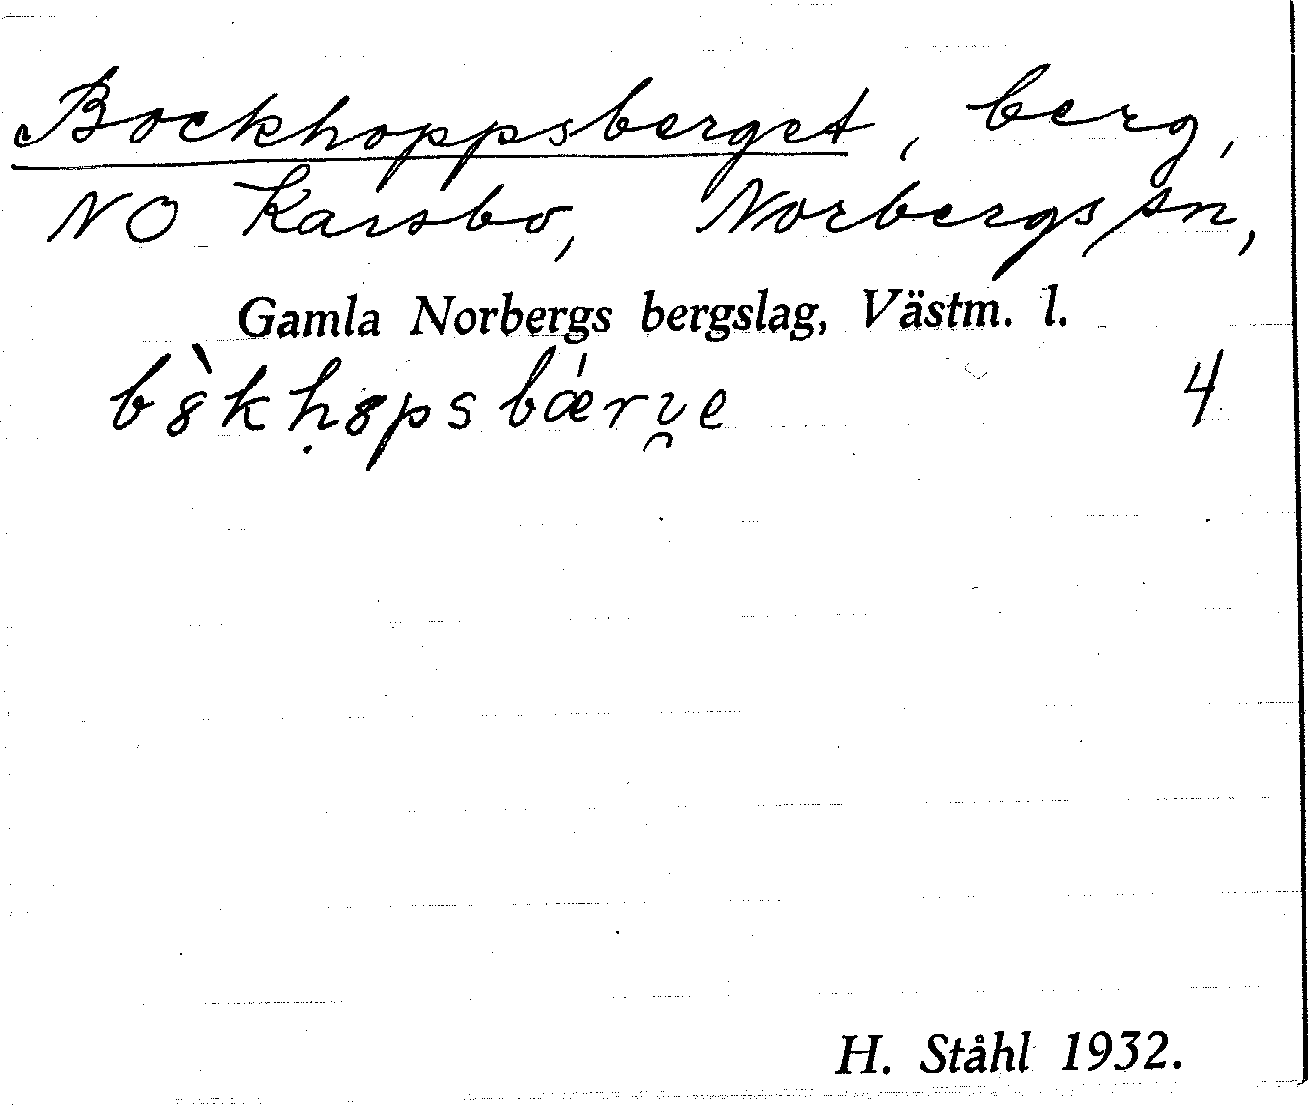 Bockhoppsberget, berg,
NO Karsbo, Norbergs sn,
Gamla Norbergs bergslag, Västm. l.
b8̀kḥ8psbǽrve 4
H. Ståhl 1932.